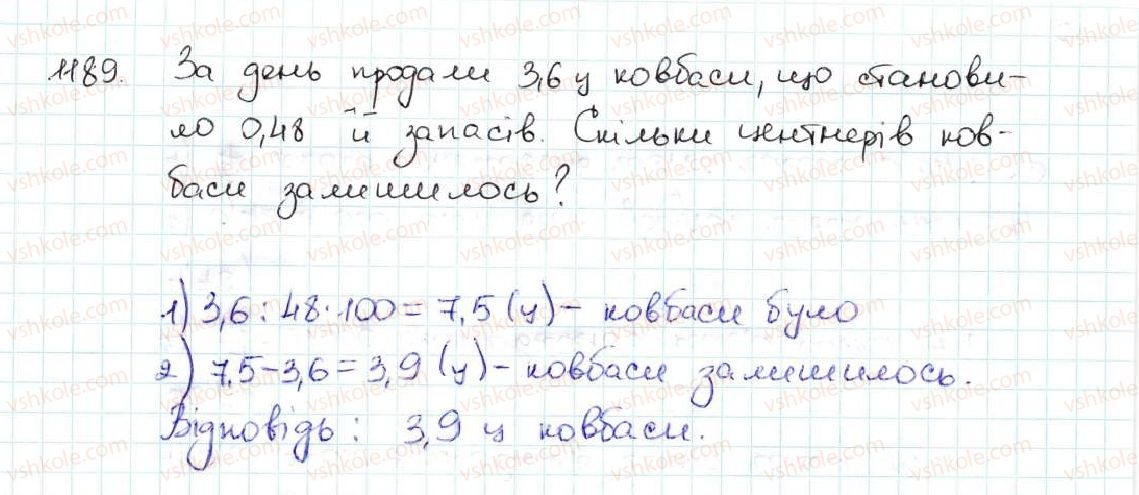 1189. За день продали 3,6 ц ковбаси, що станови-
ло 0,48 її запасів. Скільки центнерів ков-
баси залишилось?
1) 3,6 : 48 · 100 = 7,5 (ц) - ковбаси було
2) 7,5 - 3,6 = 3,9 (ц) - ковбаси залишилось.
Відповідь : 3,9 ц ковбаси.
vshkole.com